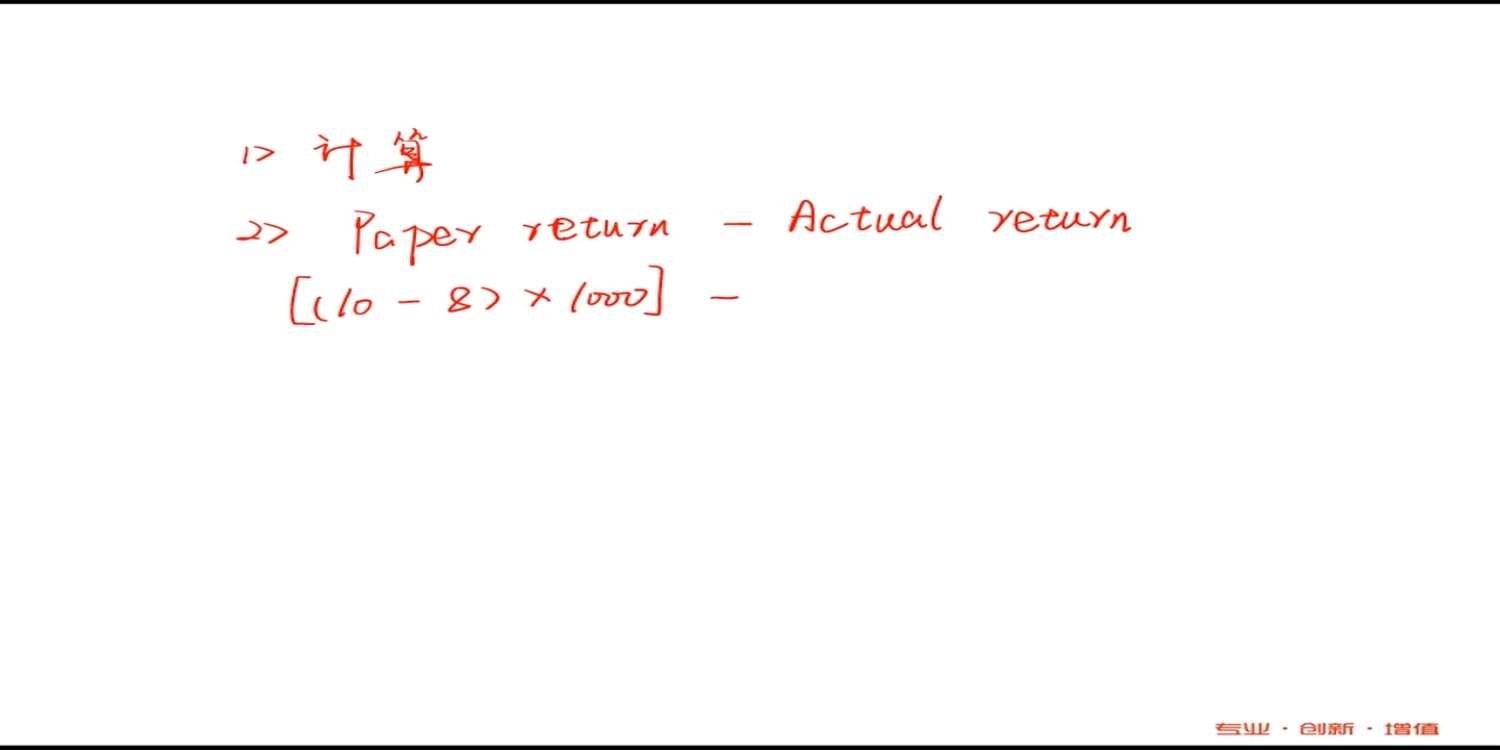 1> 计算
2> Paper return - Actual return
[(10 - 8) × 1000] -
专业·创新·增值